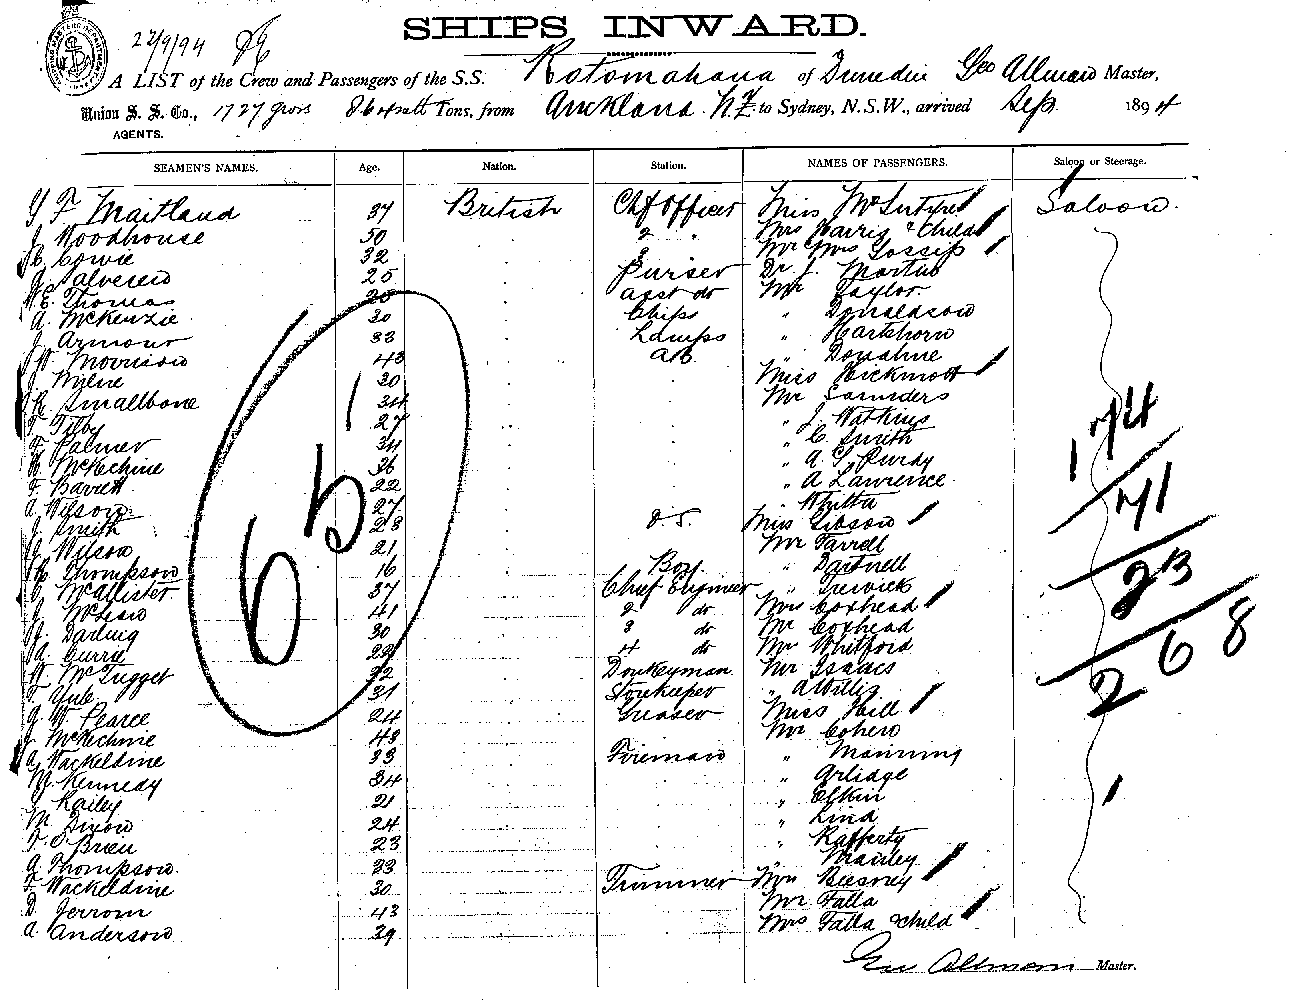 22/9/94
SHIPS INWARD.
A LIST of the Crew and Passengers of the S.S. Rotomahana of Dunedin Geo Allman Master,
Union S. S. Co., 1727 gross 864 nett Tons, from Auckland N.Z to Sydney, N.S.W., arrived Sep. 1894
AGENTS.
SEAMEN'S NAMES. Age. Nation. Station. NAMES OF PASSENGERS. Saloon or Steerage.
Y F Maitland 37 British Chf Officer Miss McIntyre Saloon.
J Woodhouse 50 2 " Mrs Harris & Child
Cowie 32 3 Mr Mrs Gossip
25 Purser Dr J. Martin
E. Thomas 20 asst do Mr Taylor
A. McKenzie 30 Chips " Donaldson
J Armour 33 Lamps " Hartshorn
W Morrison 43 A.B. " Donahue
J. Milne 30 Miss Hickmott
Smallbone 34 Mr Saunders
F Tilby 27 " J. Watkins
F Palmer 34 " C. Smith
McKechnie 36 " A. G. Purdy
F. Barrett 22 " A Lawrence
A Wilson 27 " Whitta
J. Smith 23 O.S. Miss Gibson
Wilson 21 Mr Farrell
Thompson 16 Boy " Dartnell
McAllister 37 Chief Engineer " Treswick
J McLean 41 2 do Mrs Coxhead
Darling 30 3 do Mr Coxhead
A. Currie 22 4 do Mr Whitford
McTugget 32 Donkeyman Mr Isaacs
F Yule 31 Storekeeper "
G W Pearce 24 Greaser Miss Hill
J McKechnie 43 Mr Cohen
A. Wackeldine 33 Fireman " Manning
M. Kennedy 34 " Arlidge
J Kailey 21 " Elkin
M Dixon 24 " Lind
F. O Brien 23 " Rafferty
G Thompson 33 " Manley
F. Wackeldine 30 Trimmer Mrs Beesney
D. Jerrom 43 Mr Falla
A. Anderson 39 Mrs Falla & child
65
174
71
23
268
Geo Allman Master.